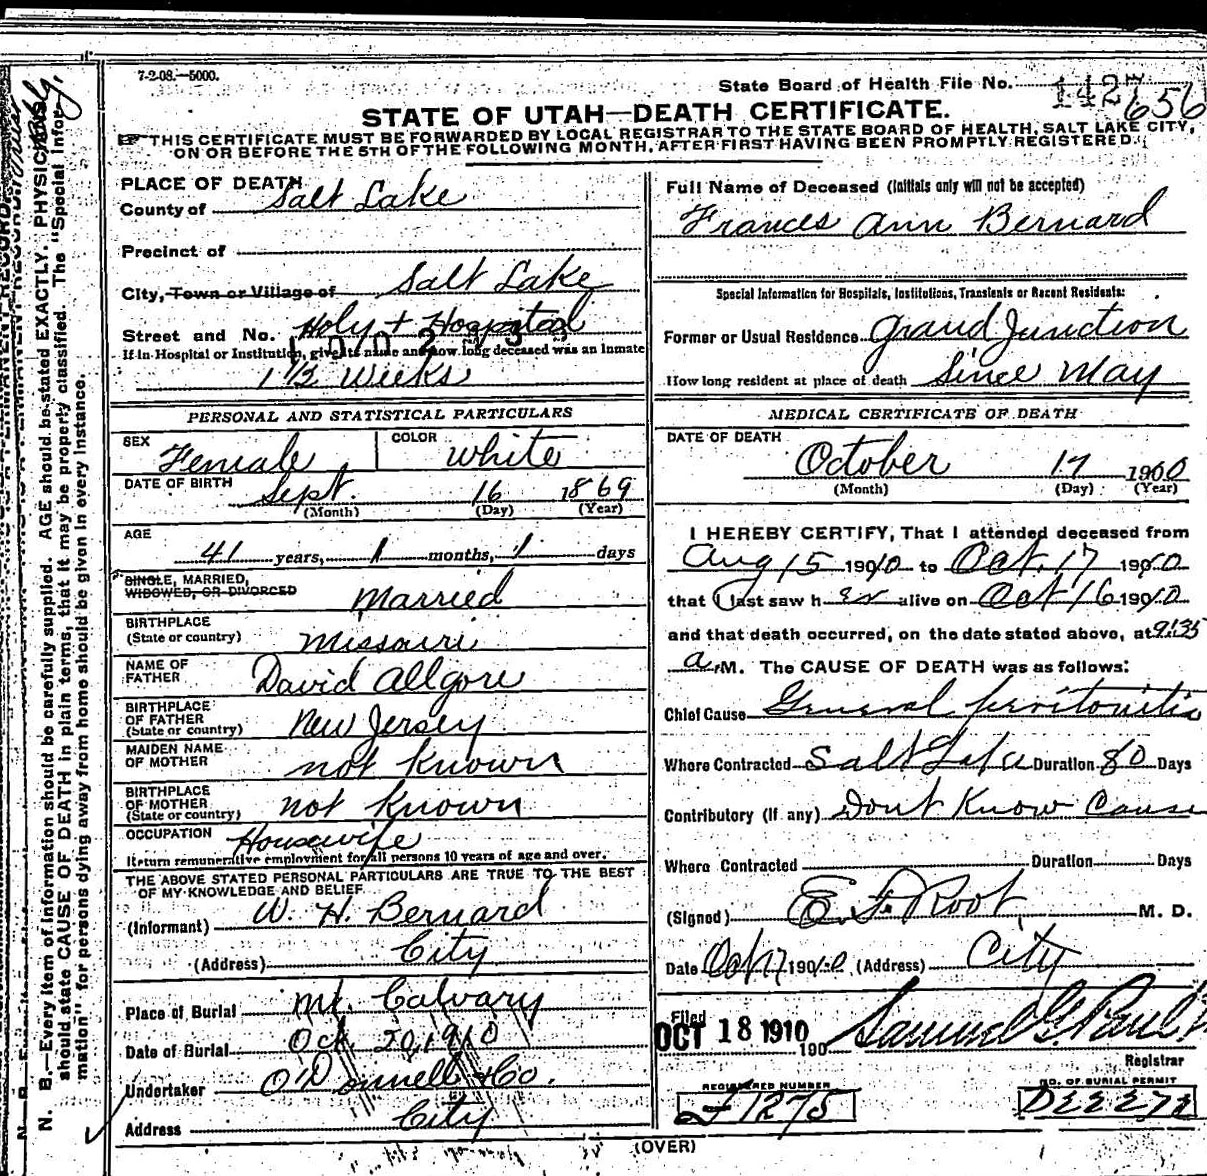 7-2-08.—5000.
State Board of Health File No. 1427
656
STATE OF UTAH—DEATH CERTIFICATE.
☞ THIS CERTIFICATE MUST BE FORWARDED BY LOCAL REGISTRAR TO THE STATE BOARD OF HEALTH, SALT LAKE CITY,
ON OR BEFORE THE 5TH OF THE FOLLOWING MONTH, AFTER FIRST HAVING BEEN PROMPTLY REGISTERED.
PLACE OF DEATH
County of Salt Lake
Precinct of
City, Town or Village of Salt Lake
Street and No. Holy + Hospital
If in Hospital or Institution, give its name and how long deceased was an inmate
1 1/2 Weeks
PERSONAL AND STATISTICAL PARTICULARS
SEX Female COLOR White
DATE OF BIRTH Sept. 16 1869
(Month) (Day) (Year)
AGE
41 years, 1 months, 1 days
SINGLE, MARRIED,
WIDOWED, OR DIVORCED Married
BIRTHPLACE
(State or country) Missouri
NAME OF
FATHER David Allgore
BIRTHPLACE
OF FATHER
(State or country) New Jersey
MAIDEN NAME
OF MOTHER not known
BIRTHPLACE
OF MOTHER
(State or country) not known
OCCUPATION Housewife
Return remunerative employment for all persons 10 years of age and over.
THE ABOVE STATED PERSONAL PARTICULARS ARE TRUE TO THE BEST
OF MY KNOWLEDGE AND BELIEF
(Informant) W. H. Bernard
(Address) City
Place of Burial Mt. Calvary
Date of Burial Oct. 20, 1910
Undertaker O'Donnell & Co.
Address City
Full Name of Deceased (Initials only will not be accepted)
Frances Ann Bernard
Special Information for Hospitals, Institutions, Transients or Recent Residents:
Former or Usual Residence Grand Junction
How long resident at place of death Since May
MEDICAL CERTIFICATE OF DEATH
DATE OF DEATH
October 17 1900
(Month) (Day) (Year)
I HEREBY CERTIFY, That I attended deceased from
Aug 15 1910 to Oct. 17 1910
that I last saw her alive on Oct 16 1910
and that death occurred, on the date stated above, at 9:35
a. M. The CAUSE OF DEATH was as follows:
Chief Cause General peritonitis
Where Contracted Salt Lake Duration 80 Days
Contributory (If any) Don't Know Cause
Where Contracted Duration Days
(Signed) E. F. Root, M. D.
Date Oct 17 1910 (Address) City
Filed
OCT 18 1910 190 Samuel G. Paul
Registrar
REGISTERED NUMBER
1275
NO. OF BURIAL PERMIT
(OVER)
N. B.—Every item of information should be carefully supplied. AGE should be stated EXACTLY. PHYSICIANS
should state CAUSE OF DEATH in plain terms, that it may be properly classified. The "Special Infor-
mation" for persons dying away from home should be given in every instance.